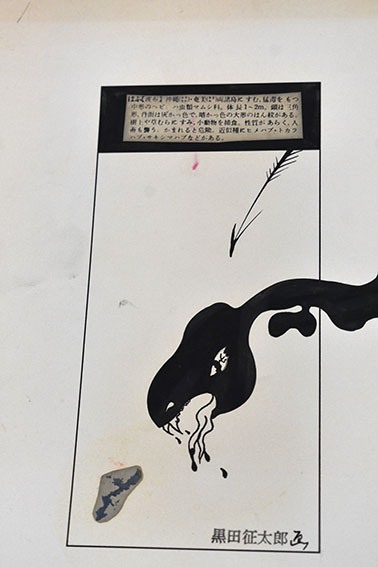 はぶ【波布】沖縄および奄美諸島にすむ、猛毒をもつ
中形のヘビ。ハ虫類マムシ科。体長1~2m。頭は三角
形、背面は灰かっ色で、暗かっ色の大形のはん紋がある。
樹上や草むらにすみ、小動物を捕食。性質があらく、人
畜も襲う。かまれると危険。近似種にヒメハブ・トカラ
ハブ・サキシマハブなどがある。
黒田征太郎 画